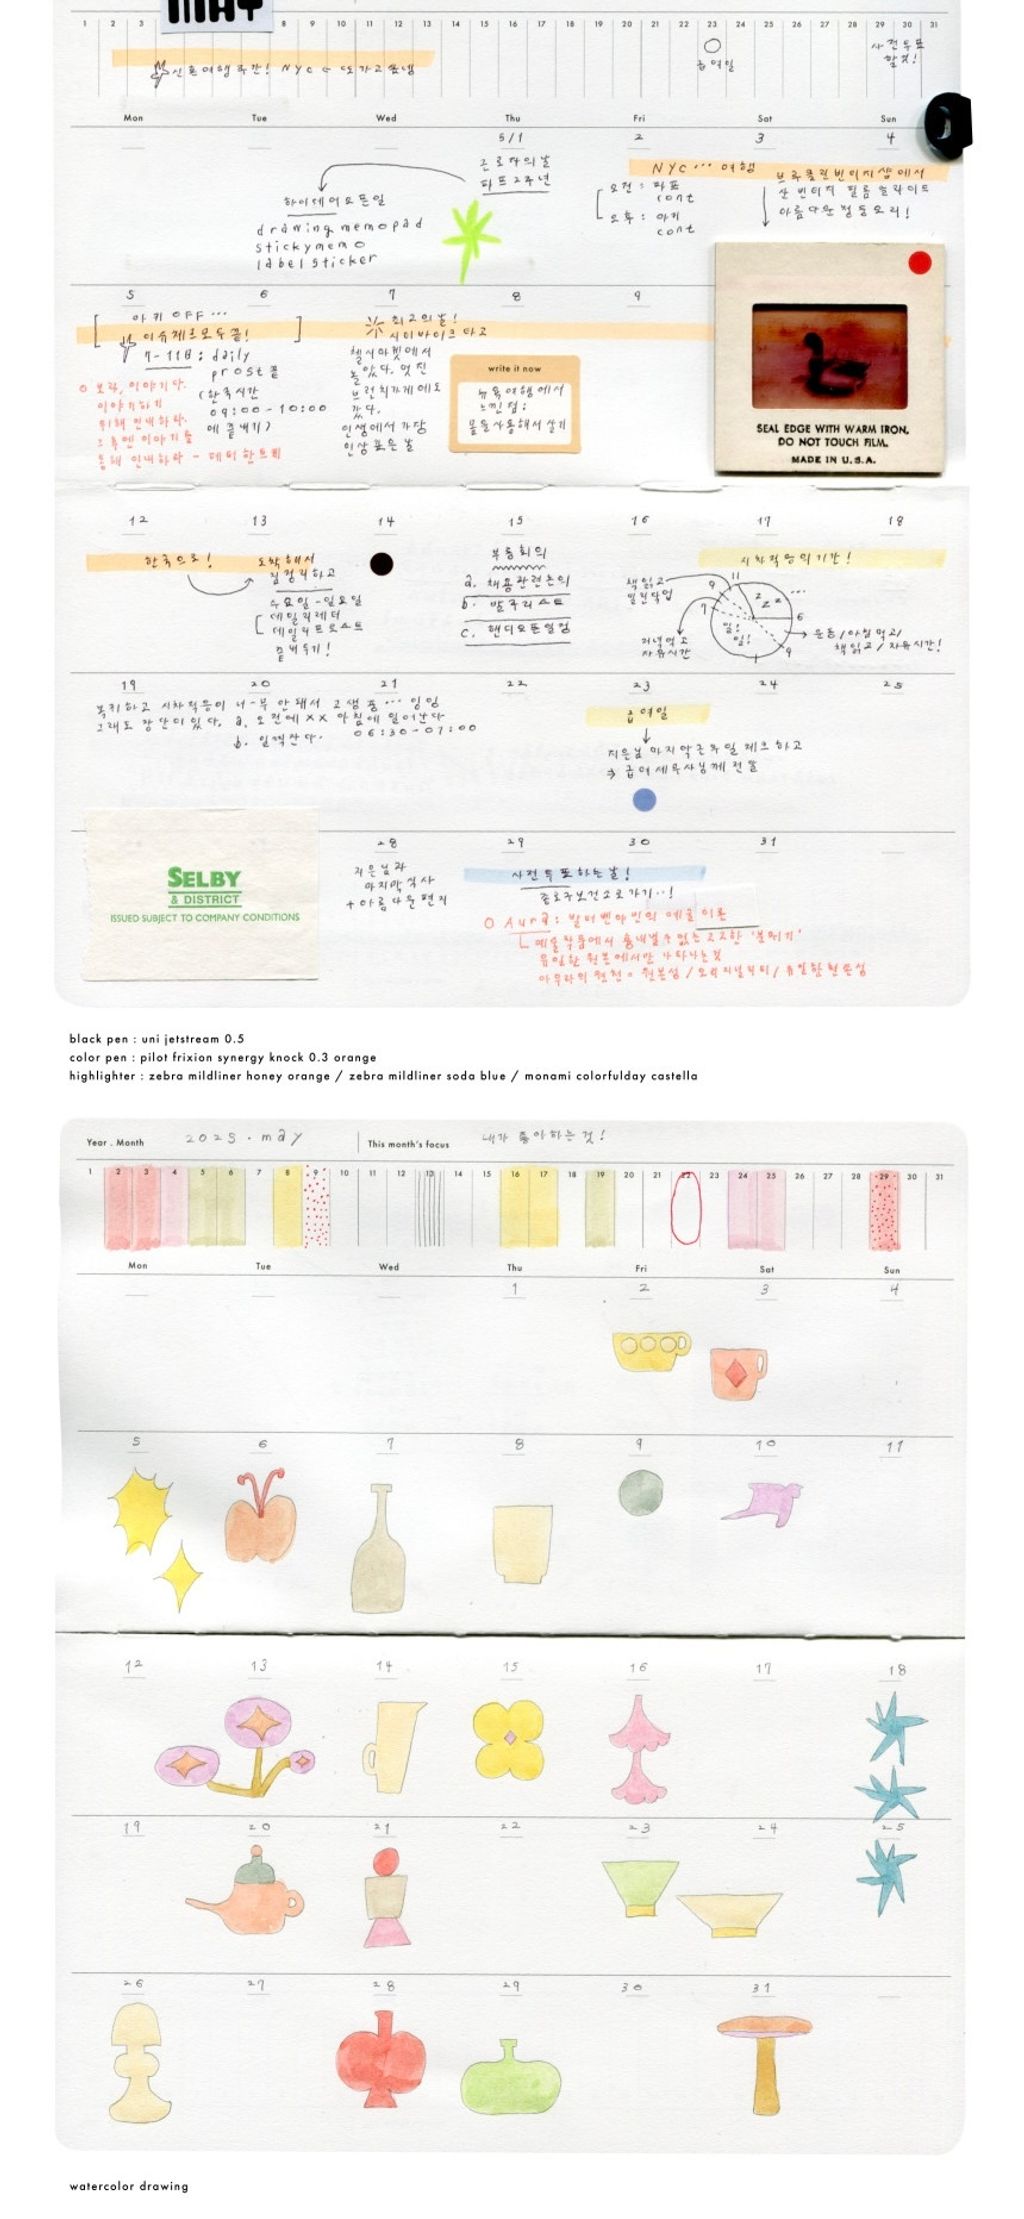 MAY
1 2 3 8 9 10 11 12 13 14 15 16 17 18 19 20 21 22 23 24 25 26 27 28 29 30 31
급여일
사전투표
할것!
신혼여행 주간! NYC
Mon Tue Wed Thu Fri Sat Sun
5/1 2 3 4
근로자의날
파프2주년
하이데어오픈일
drawing memopad
sticky memo
label sticker
NYC … 여행
오전 :
cont
오후 : 아키
cont
브루클린빈티지샵에서
산 빈티지 필름슬라이드
아름다운 청둥오리!
5 6 7 8 9
아키 OFF …
7-11日 : daily
prost 끝
(한국시간
09:00-10:00
에 끝내기)
이야기하기
위해 인내하라.
그 후엔 이야기를
통해 인내하라 - 페터 한트케
최고의날!
시티바이크 타고
첼시마켓에서
놀았다. 멋진
브런치가게에도
갔다.
인생에서 가장
인상깊은 날
write it now
뉴욕여행에서
느낀점:
물을사용해서 살기
SEAL EDGE WITH WARM IRON.
DO NOT TOUCH FILM.
MADE IN U.S.A.
12 13 14 15 16 17 18
한국으로!
도착해서
짐정리하고
수요일-일요일
데일리레터
데일리프로스트
끝내두기!
부동회의
a. 채용관련논의
b. 발주리스트
c. 핸디오픈일정
시차적응의기간!
책읽고
밀린작업
저녁먹고
자유시간
11 9 7 zzz … 6 9 1
일! 일!
운동/아침먹고/
책읽고/자유시간!
19 20 21 22 23 24 25
복귀하고 시차적응이 너-무 안돼서 고생중 … 잉잉
그래도 장단이있다. a. 오전에 xx 아침에 일어난다
b. 일찍잔다. 06:30-07:00
급여일
지은님 마지막근무일 체크하고
→ 급여세무사님께 전달
SELBY
& DISTRICT
ISSUED SUBJECT TO COMPANY CONDITIONS
28 29 30 31
지은님과
마지막식사
+아름다운편지
사전투표하는날!
종로구보건소로가기..!
Aura : 발터벤야민의 예술이론
예술작품에서 흉내낼수없는 고고한 '분위기'
유일한 원본에서만 나타나는것
아우라의 원천 = 원본성/오리지널리티/유일한현존성
black pen : uni jetstream 0.5
color pen : pilot frixion synergy knock 0.3 orange
highlighter : zebra mildliner honey orange / zebra mildliner soda blue / monami colorfulday castella
Year . Month 2025 . may This month's focus 내가 좋아하는것!
1 2 3 4 5 6 7 8 9 10 11 12 13 14 15 16 17 18 19 20 21 22 23 24 25 26 27 28 29 30 31
Mon Tue Wed Thu Fri Sat Sun
1 2 3 4
5 6 7 8 9 10 11
12 13 14 15 16 17 18
19 20 21 22 23 24 25
26 27 28 29 30 31
watercolor drawing